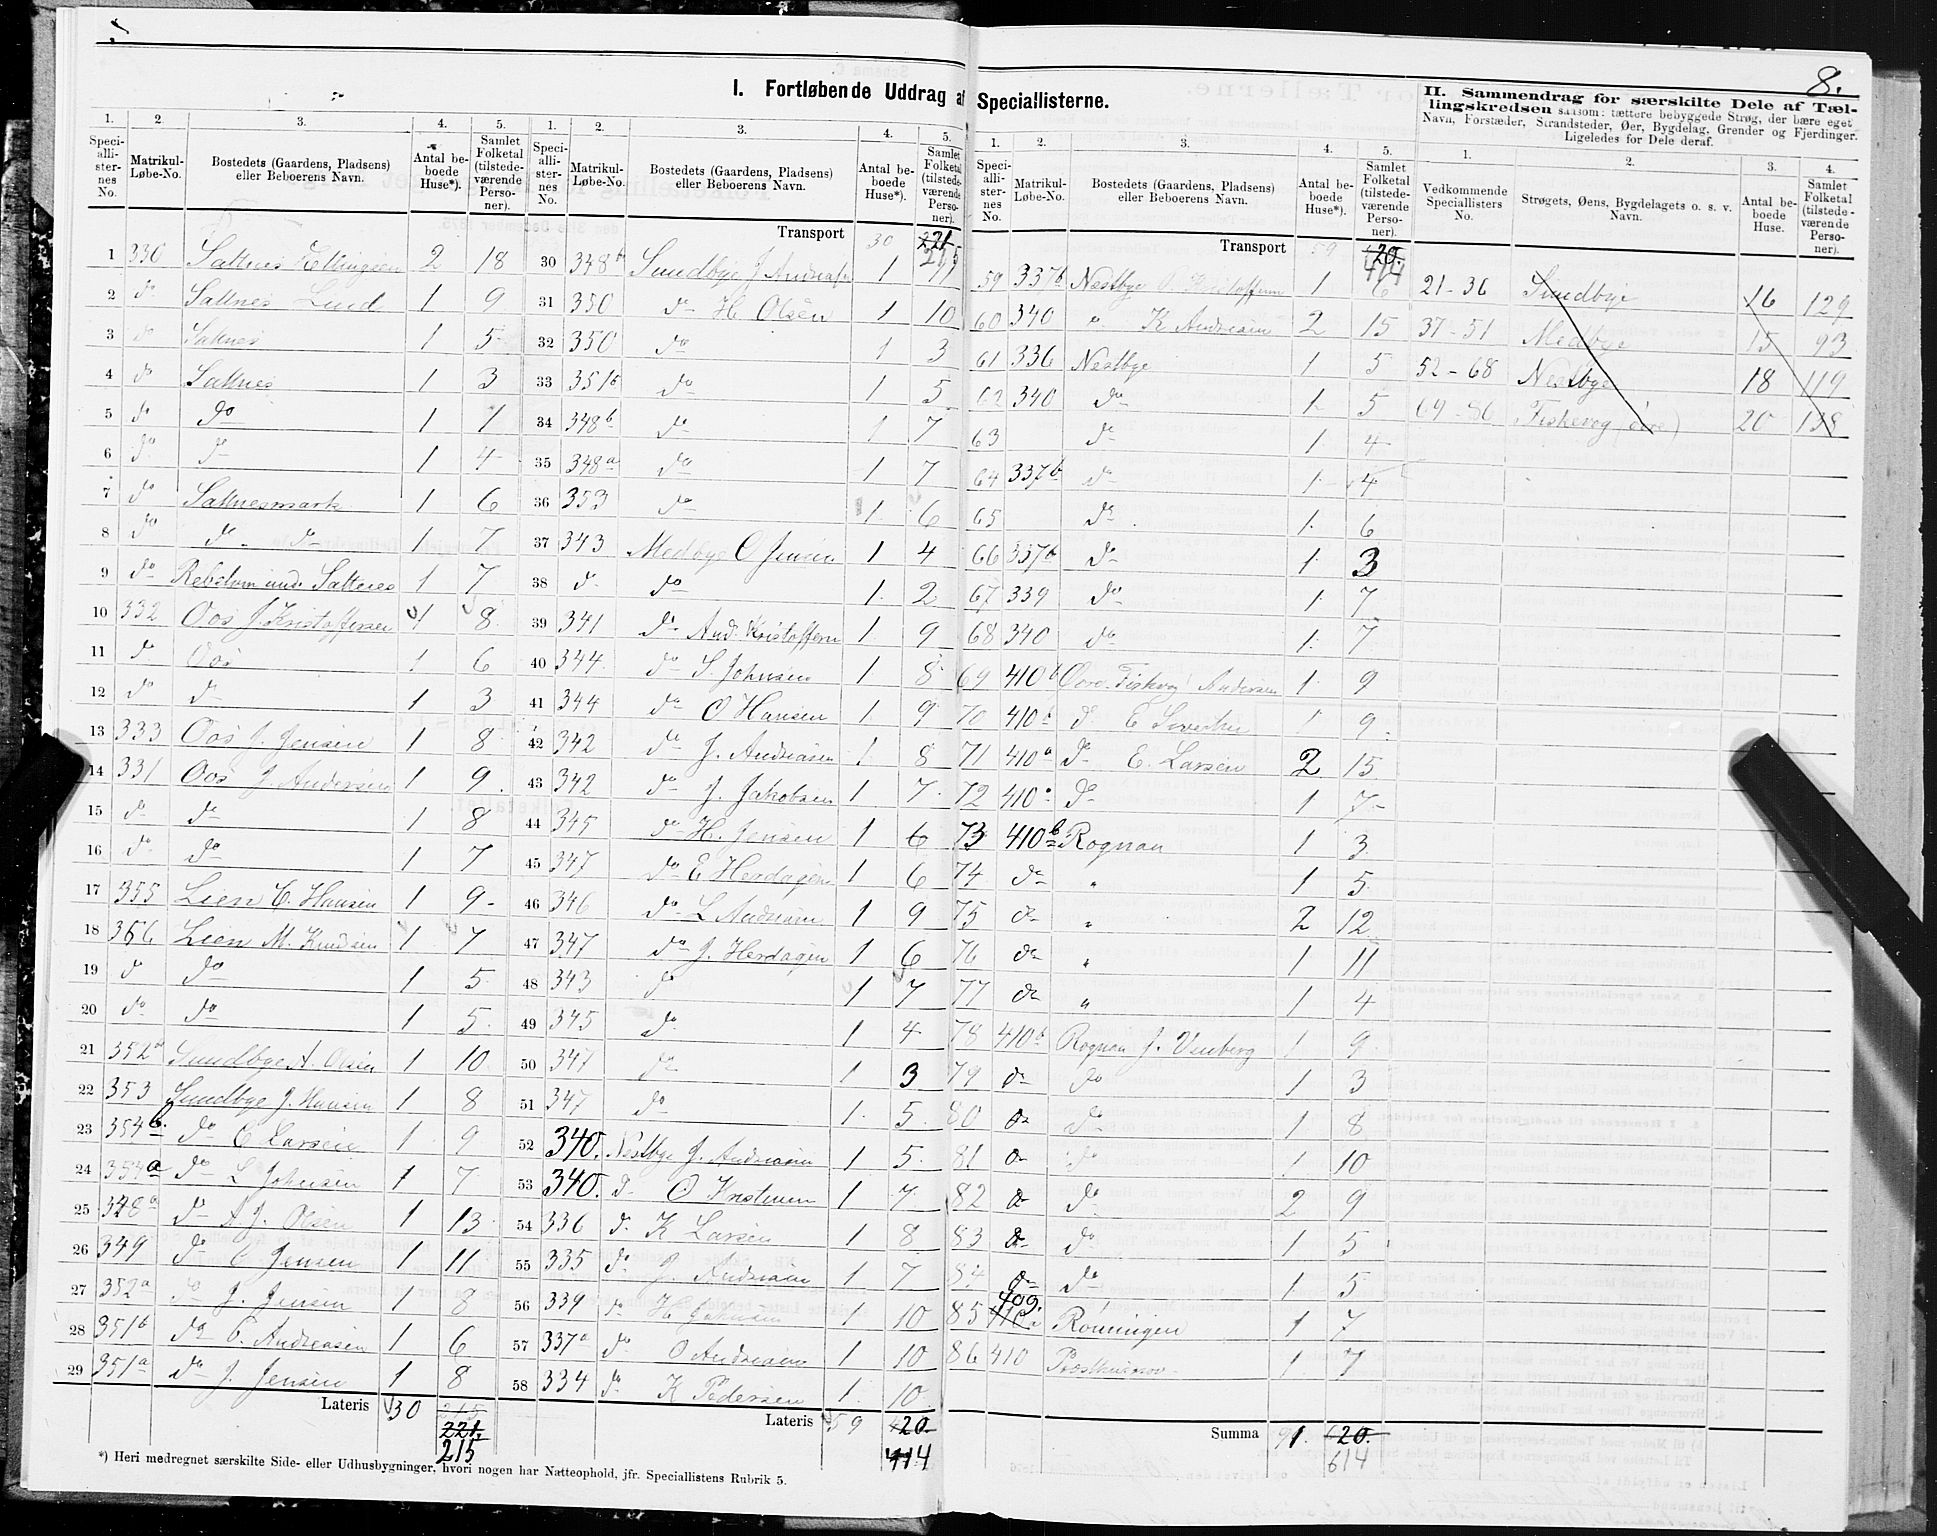 8.
I. Fortløbende Uddrag af Speciallisterne.
II. Sammendrag for særskilte Dele af Tællingskredsen saasom: tættere bebyggede Strøg, der bære eget Navn, Forstæder, Strandsteder, Øer, Bygdelag, Grender og Fjerdinger. Ligeledes for Dele deraf.
1. 2. 3. 4. 5.
Speciallisternes No. Matrikul-Løbe-No. Bostedets (Gaardens, Pladsens) eller Beboerens Navn. Antal beboede Huse*). Samlet Folketal (tilstedeværende Personer).
1 330 Saltnes Ellingsen 2 18
2 do Saltnes Lund 1 9
3 do Saltnes 1 5
4 do Saltnes 1 3
5 do do 1 7
6 do do 1 4
7 do Saltnesmark 1 6
8 do do do 1 7
9 do Saltnes 1 7
10 332 Oos J. Kristoffersen 1 8
11 do Oos 1 6
12 do do 1 3
13 333 Oos J. Jensen 1 8
14 331 Oos J. Andersen 1 9
15 do do 1 8
16 do do 1 7
17 355 Lien C. Hansen 1 9
18 356 Lien M. Knudsen 1 7
19 do do 1 5
20 do do 1 5
21 352a Sundbye A. Olsen 1 10
22 353 Sundbye J. Hansen 1 8
23 354b do C Larsen 1 9
24 354a do L Johnsen 1 7
25 348a do A J. Olsen 1 13
26 349 do C Jensen 1 11
27 352a do J. Jensen 1 8
28 351b do P. Andreasen 1 6
29 351a do J. Jensen 1 8
Lateris 30 215
221
215
1. 2. 3. 4. 5.
Speciallisternes No. Matrikul-Løbe-No. Bostedets (Gaardens, Pladsens) eller Beboerens Navn. Antal beboede Huse*). Samlet Folketal (tilstedeværende Personer).
Transport 30 221
215
30 348b Sundbye J Andreas 1 11
31 350 do H Olsen 1 10
32 350 do 1 3
33 351b do 1 5
34 348b do 1 7
35 348a do 1 7
36 353 do 1 6
37 343 Medbye O Jensen 1 4
38 do do 1 2
39 341 do And. Kristoffersen 1 9
40 344 do S. Johnsen 1 8
41 344 do O Hansen 1 9
42 342 do J. Andreasen 1 8
43 342 do J. Jakobsen 1 7
44 345 do H. Jensen 1 6
45 347 do E Herdagen 1 6
46 346 do L Andreasen 1 9
47 347 do J. Herdagen 1 6
48 343 do 1 7
49 345 do 1 4
50 347 do 1 3
51 347 do 1 5
52 340. Nestbye J. Andreasen 1 5
53 340. do O Kristensen 1 7
54 336 do K Larsen 1 8
55 335 do J. Andreasen 1 7
56 339 do H Johnsen 1 10
57 337a do O Andreasen 1 10
58 334 do K Pedersen 1 10
Lateris 59 420
414
*) Heri medregnet særskilte Side- eller Udhusbygninger, hvori nogen har Natteophold, jfr. Speciallistens Rubrik 5.
1. 2. 3. 4. 5.
Speciallisternes No. Matrikul-Løbe-No. Bostedets (Gaardens, Pladsens) eller Beboerens Navn. Antal beboede Huse*). Samlet Folketal (tilstedeværende Personer).
Transport 59 420
414
59 337b Nestbye P Kristoffersen 1 6
60 340 " K Andreasen 2 15
61 336 Nestbye 1 5
62 340 do 1 5
63 do 1 4
64 337b do 1 4
65 do 1 6
66 337b do 1 3
67 339 do 1 7
68 340 do 1 7
69 410b Andersen 1 9
70 410b do E 1 9
71 410a do E. Larsen 2 15
72 410a do 1 7
73 410b Rognan 1 3
74 do " 1 5
75 do " 2 12
76 do " 1 11
77 do " 1 4
78 410b Rognan J. Venberg 1 9
79 do do 1 3
80 do do 1 8
81 do do 1 10
82 do do 2 9
83 do do 1 5
84 do do 1 5
85 410a 409. Rønningen 1 7
86 410 1 7
Summa 91. 620.
614
1. 2. 3. 4.
Vedkommende Speciallisters No. Strøgets, Øens, Bygdelagets o. s. v. Navn. Antal beboede Huse. Samlet Folketal (tilstedeværende Personer).
21-36 Sundbye 16 129
37-51 Medbye 15 93
52-68 Nestbye 18 119
69-86 Fiskevog (øvre) 20 138